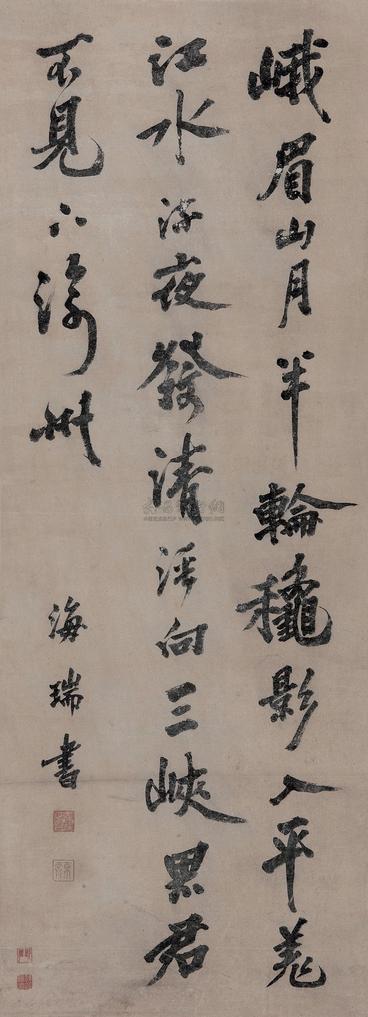 峨眉山月半輪龝影入平羌
江水流夜發清溪向三峽思君
不見下渝州
海瑞書